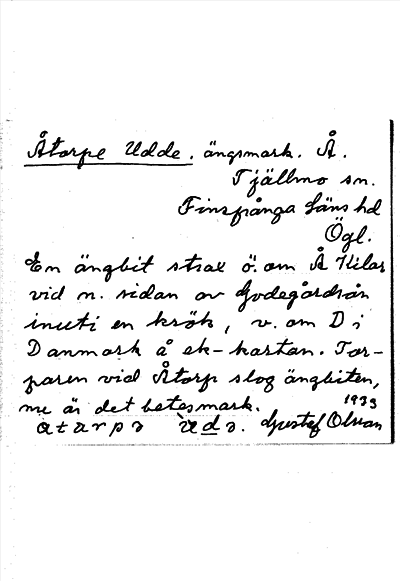 Åtorpe Udde. ängsmark. Å.
Tjällmo sn.
Finspånga läns hd
Ögl.
En ängbit strax ö. om Å Kilar
vid n. sidan av Godegårdsån
inuti en krök, v. om D i
Danmark å ek-kartan. Tor-
paren vid Åtorp slog ängbiten,
nu är det betesmark.
1933
Gustaf Olsson